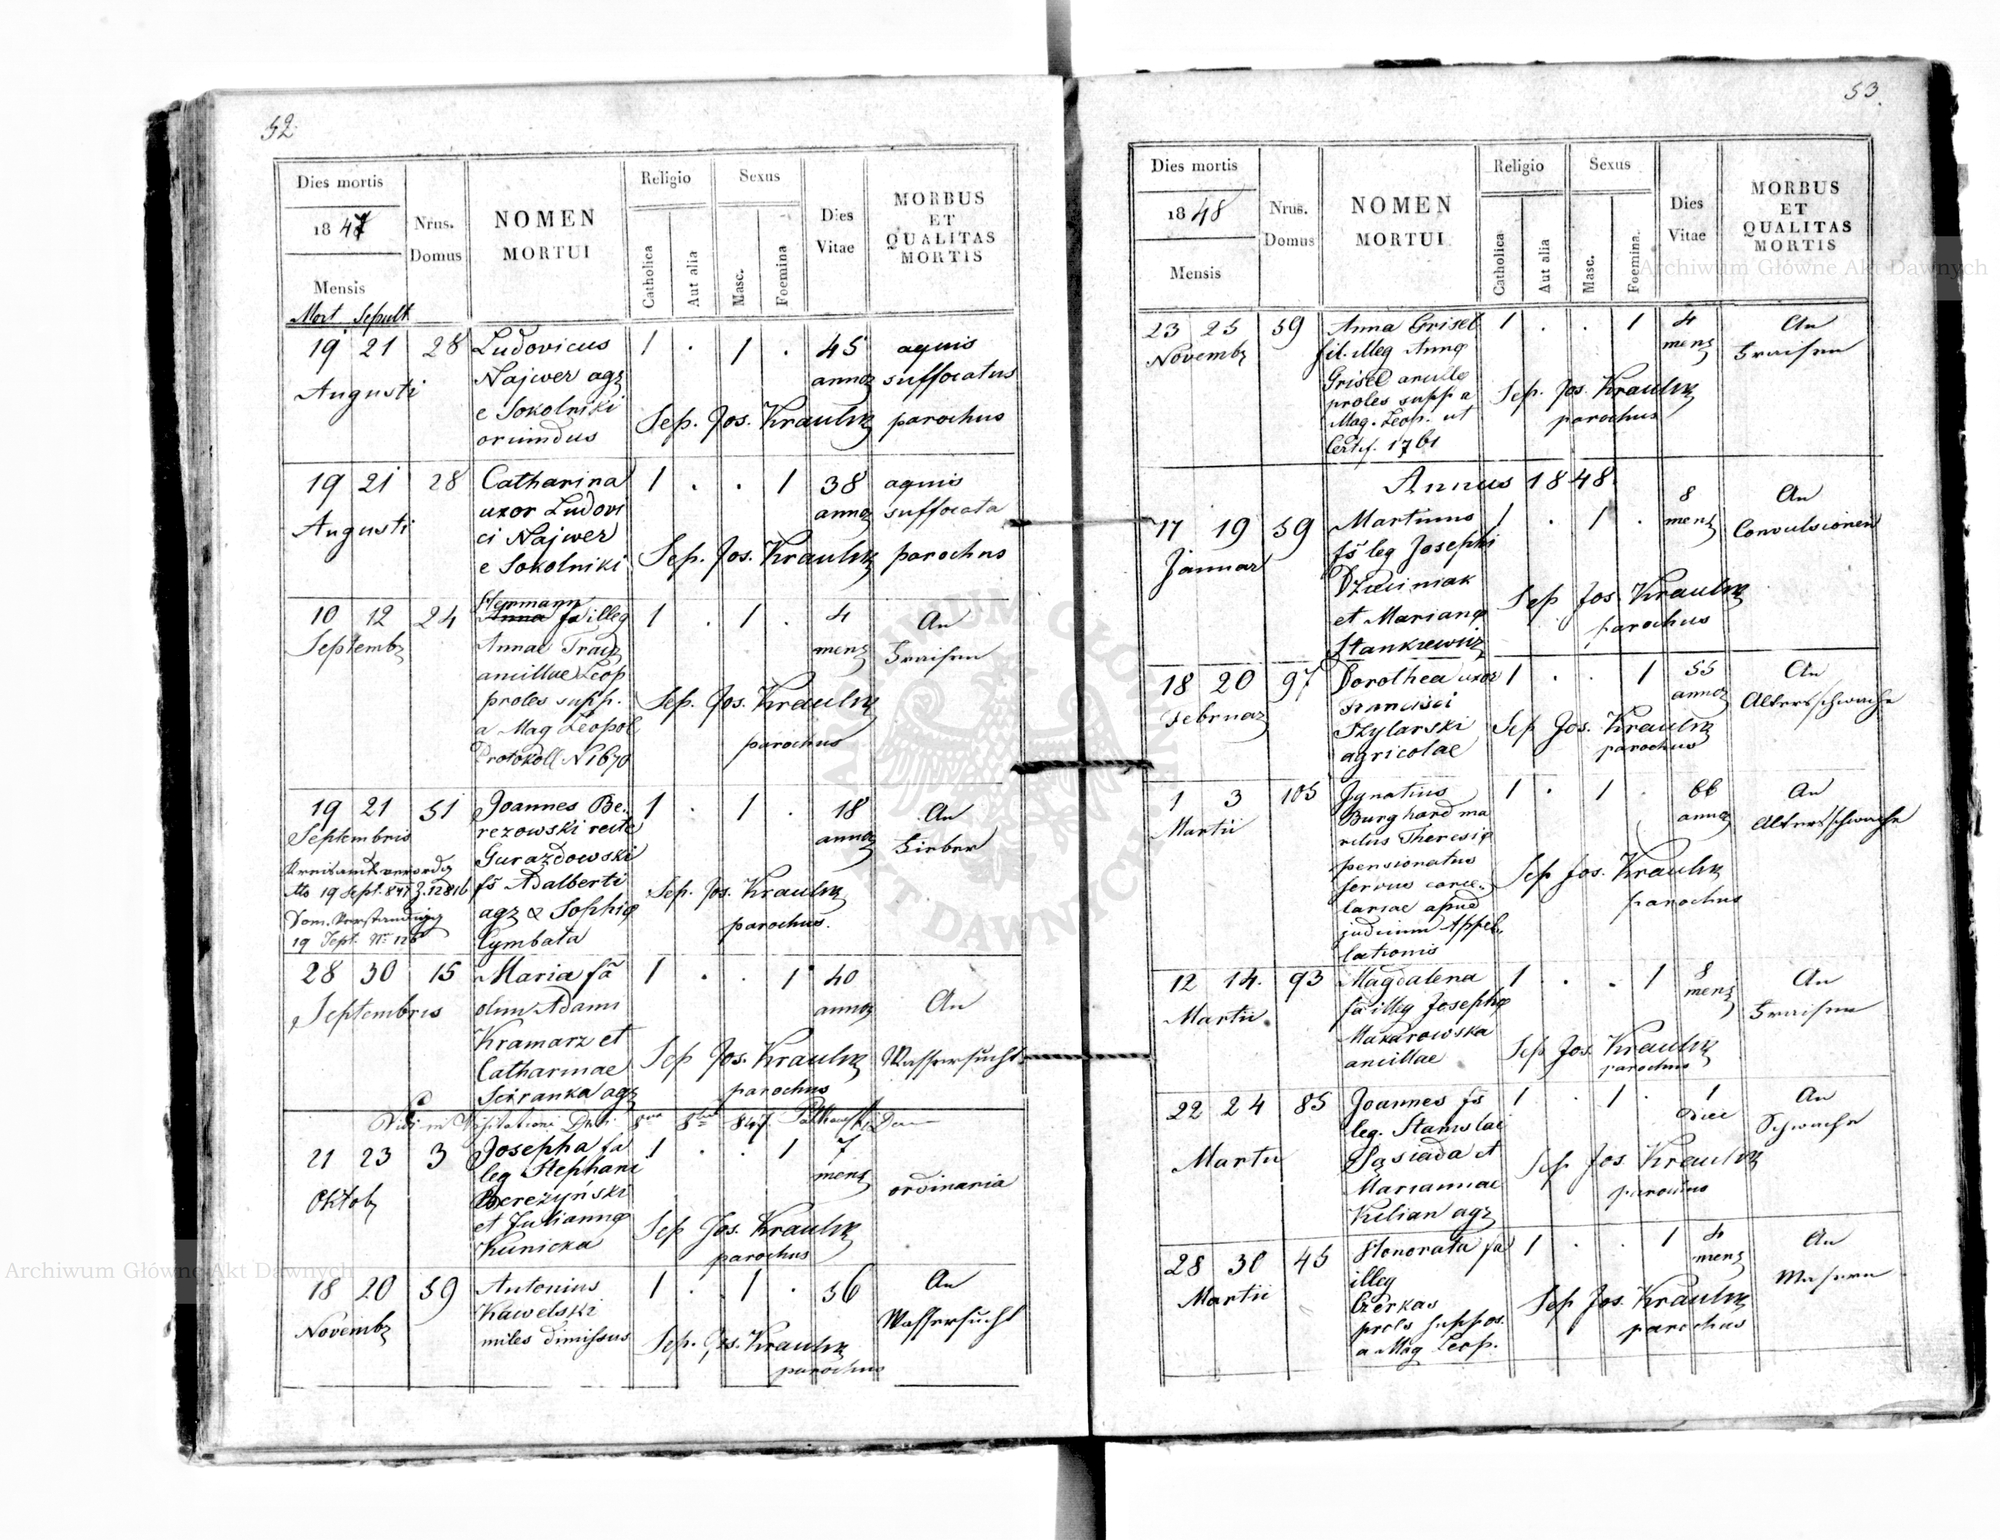 52.
Dies mortis
1847
Mensis
Mort Sepult
Nrus.
Domus
NOMEN
MORTUI
Religio
Catholica
Aut alia
Sexus
Masc.
Foemina
Dies
Vitae
MORBUS
ET
QUALITAS
MORTIS
19 21 28 Ludovicus 1 . 1 . 45 aquis
Augusti Najwer agz annoz suffocatus
e Sokolniki Sep. Jos. Kraulik parochus
oriundus
19 21 28 Catharina 1 . . 1 38 aquis
Augusti uxor Ludovi annoz suffocata
ci Najwer
e Sokolniki Sep. Jos. Kraulik parochus
Hermann
10 12 24 Anna fa illeg 1 . 1 . 4 An
Septembz Annae menz Fraisen
ancillae Leop
proles supp. Sep. Jos. Kraulik
a Mag Leopol parochus
Protokoll N 1670
19 21 51 Joannes Be- 1 . 1 . 18 An
Septembris rezowski recte annoz Fieber
Gurazdowski
Kreisamtsverordg
fs Adalberti Sep. Jos. Kraulik
19 Sept. 847 Z. 12816
agz & Sophię parochus.
Dom. Verständigg
Cymbała
19 Sept. No 126
28 30 15 Maria fa 1 . . 1 40
Septembris olim Adami annoz An
Kramarz et
Catharinae Sep Jos. Kraulik Wassersucht
Sciranka agz parochus
Vidi in Visitatione 847
21 23 3 Josepha fa 1 . . 1 7
leg Stephani menz ordinaria
Oktob Berezyński
et Juliannę Sep Jos. Kraulik
Kunicka parochus
18 20 59 Antonius 1 . 1 . 56 An
Novembz Kawelski Wassersucht
miles dimissus Sep. Jos. Kraulik
parochus
53.
Dies mortis
1848
Mensis
Nrus.
Domus
NOMEN
MORTUI
Religio
Catholica
Aut alia
Sexus
Masc.
Foemina.
Dies
Vitae
MORBUS
ET
QUALITAS
MORTIS
23 25 59 Anna Grisel 1 . . 1 4 An
Novembz fil. illeg Annę menz Fraisen
Grisel ancillę Sep. Jos. Kraulik
proles supp a parochus
Mag. Leop. ut
Certif. 1761
Annus 1848.
17 19 59 Martinus 1 . 1 . 8 menz An
Januar fs leg Josephi Convulsionen
Dzusiniak Sep Jos. Kraulik
et Mariannę parochus
Stankiewicz
18 20 97 Dorothea uxor 1 . . 1 55 An
Februaz Francisci annoz Altersschwäche
Szylarski Sep Jos. Kraulik
agricolae parochus
1 3 105 Ignatius 1 . 1 . 66 An
Martii Burghard ma annoz Altersschwäche
ritus Theresię
pensionatus Sep Jos. Kraulik
servus cance- parochus
lariae apud
judicium Appel-
lationis
12 14. 93 Magdalena 1 . . 1 8 An
Martii fa illeg Josephę menz Fraisen
Makarowska Sep Jos. Kraulik
ancillae parochus
22 24 85 Joannes fs 1 . 1 . 1 An
leg. Stanislai Diei Schwäche
Martii Sąsiada et Sep Jos. Kraulik
Mariannae parochus
Kilian agz
28 30 45 Honorata fa 1 . . 1 4 An
Martii illeg menz Masern
Czerkas Sep Jos. Kraulik
prols suppos. parochus
a Mag Leop.
Archiwum Główne Akt Dawnych
Archiwum Główne Akt Dawnych
ARCHIWUM GŁÓWNE AKT DAWNYCH